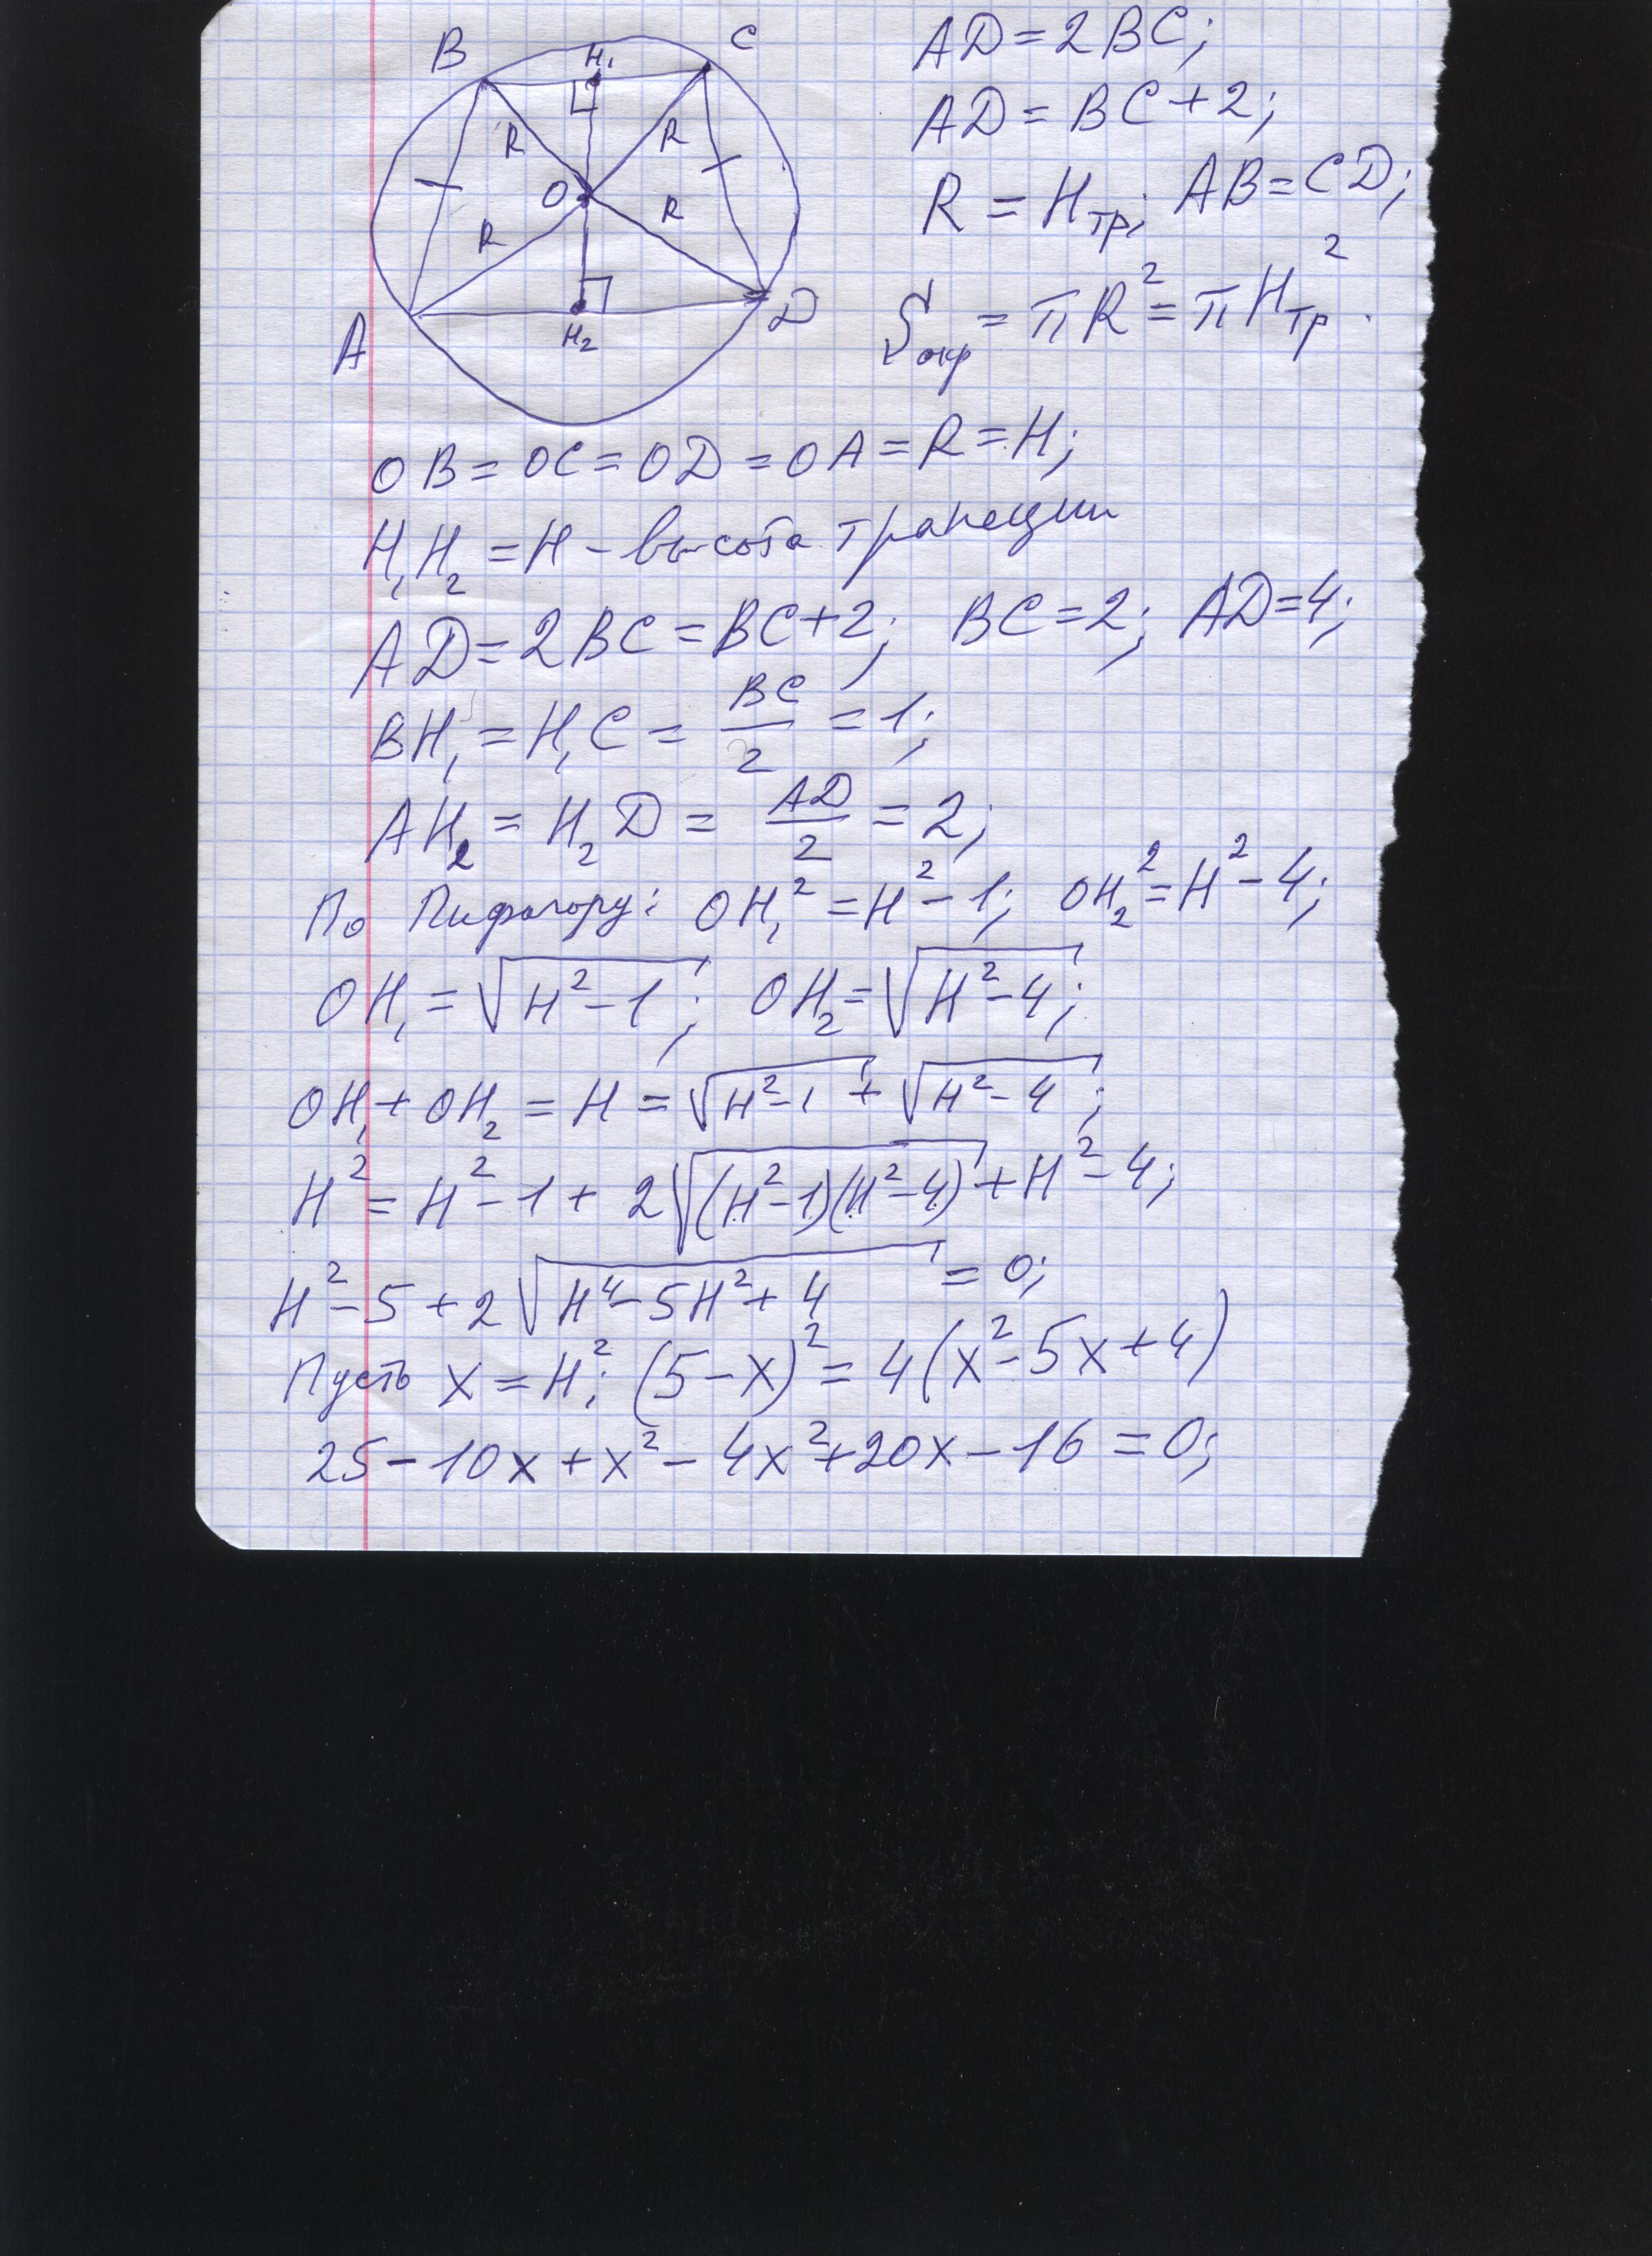 B
H₁
C
R
R
O
R
R
A
H₂
D
AD = 2BC;
AD = BC + 2;
R = Hтр; AB = CD;
Sокр = πR² = πHтр².
OB = OC = OD = OA = R = H;
H₁H₂ = H - высота трапеции
AD = 2BC = BC + 2; BC = 2; AD = 4;
BH₁ = H₁C = BC/2 = 1;
AH₂ = H₂D = AD/2 = 2;
По Пифагору: OH₁² = H² - 1; OH₂² = H² - 4;
OH₁ = √(H² - 1); OH₂ = √(H² - 4);
OH₁ + OH₂ = H = √(H² - 1) + √(H² - 4);
H² = H² - 1 + 2√((H² - 1)(H² - 4)) + H² - 4;
H² - 5 + 2√(H⁴ - 5H² + 4) = 0;
Пусть x = H²; (5 - x)² = 4(x² - 5x + 4)
25 - 10x + x² - 4x² + 20x - 16 = 0;